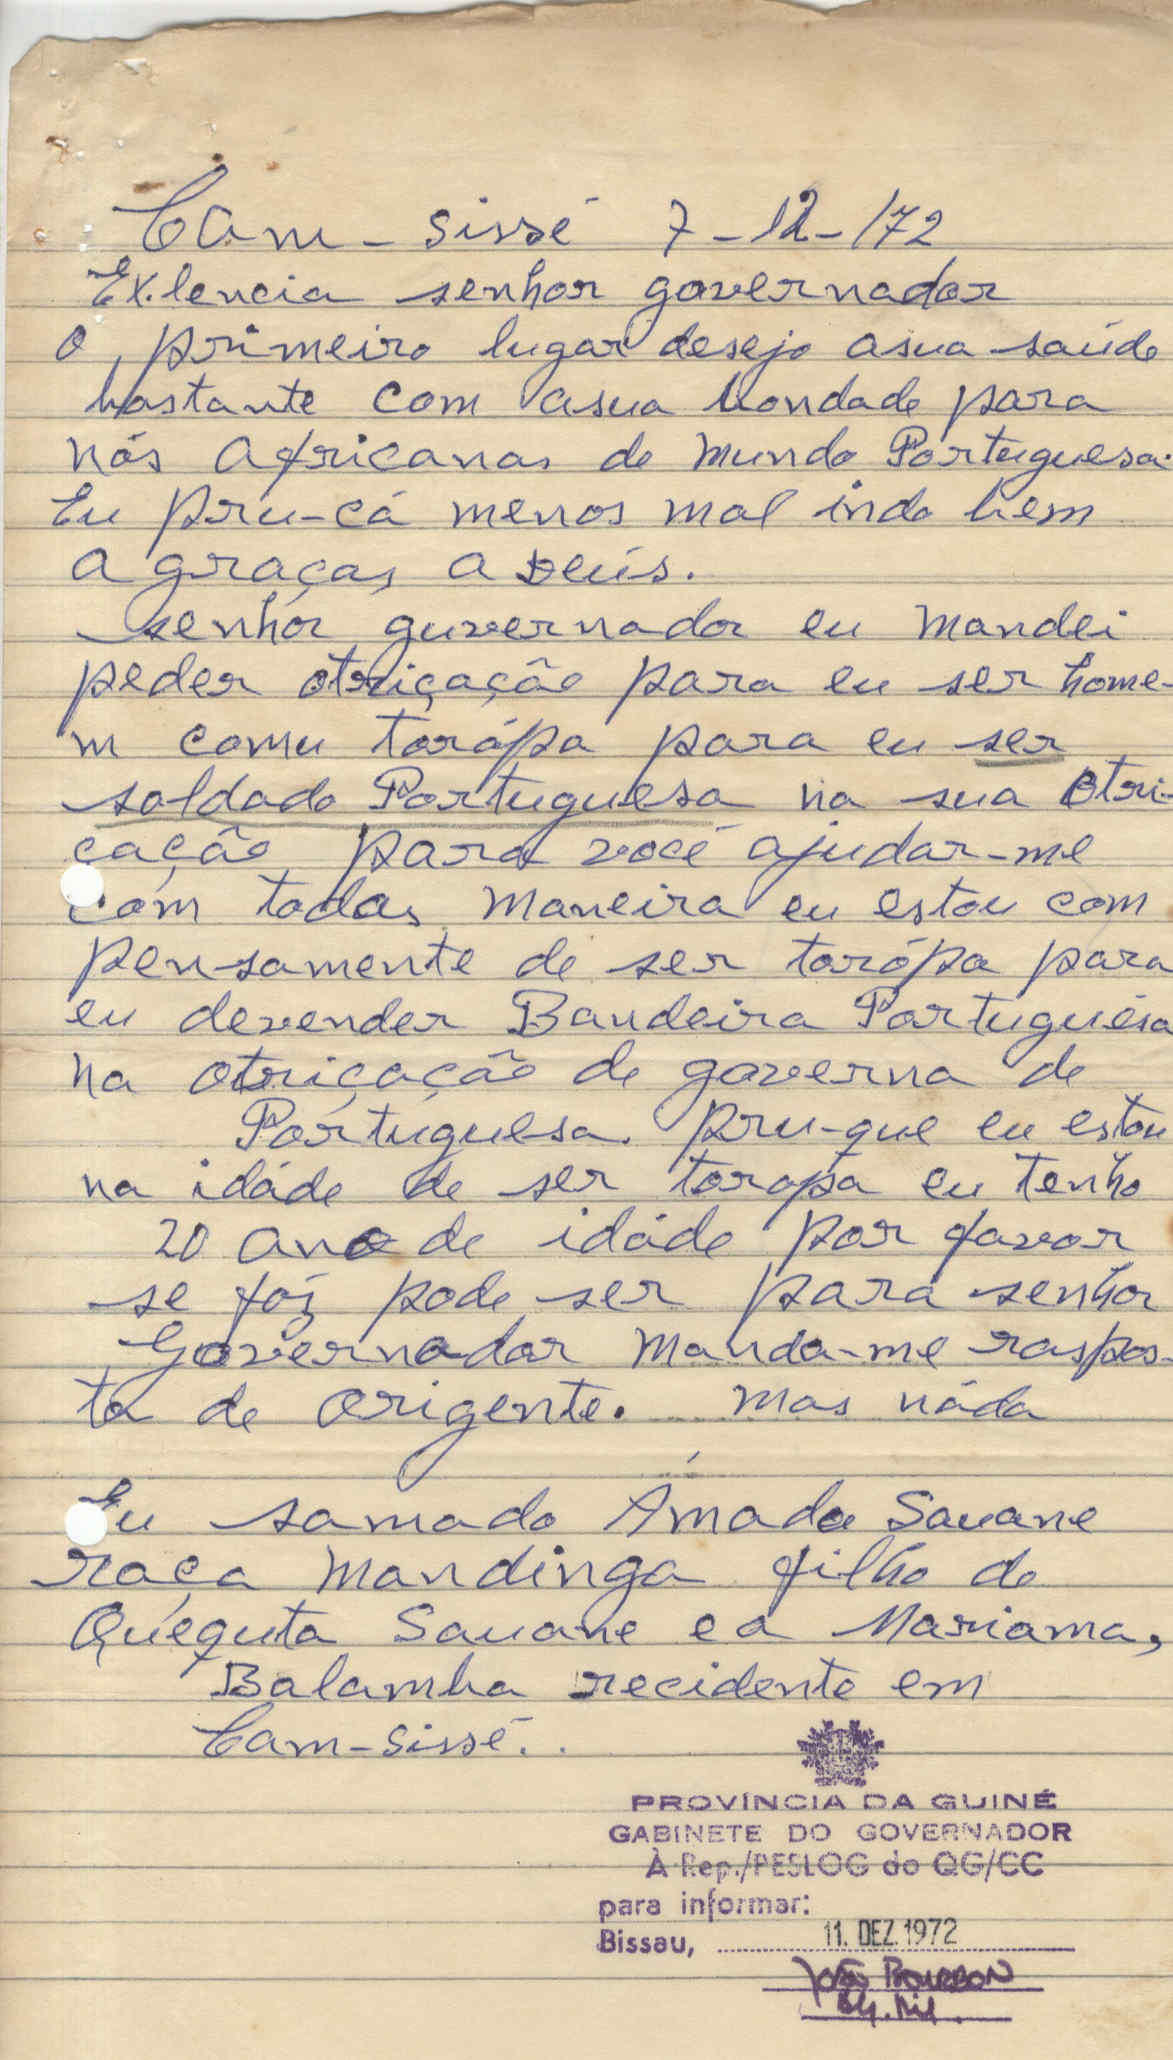 Cam-sissé 7-12-/72
Ex.lencia senhor governador
o, primeiro lugar desejo asua saúde
bastante com asua bondade para
nós africanas de mundo Portuguesa.
Eu pru-cá menos mal indo bem
a graças a deús.
senhór guvernador eu mandei
peder otriçação para eu ser home-
m comu torópa para eu ser
soldado Portuguesa na sua Otri-
çação para você ajudar-me
com todas maneira eu estou com
pensamente de ser torópa para
eu devender Bandeira Portuguésa
na otriçação de governa de
Pórtuguesa. pru-que eu estou
na idáde de ser toropa eu tenho
20 ano de idáde por favor
se foi pode ser para senhor
Governador manda-me raspos-
ta de origente. mas náda
Eu samado Ámada Sauane
raça mandinga filho de
Quéquta Sauane e a Mariama,
Balamba recidente em
Cam-sissé..
PROVÍNCIA DA GUINÉ
GABINETE DO GOVERNADOR
À Rep./PESLOG do QG/CC
para informar:
Bissau, 11. DEZ. 1972
João Bourbon